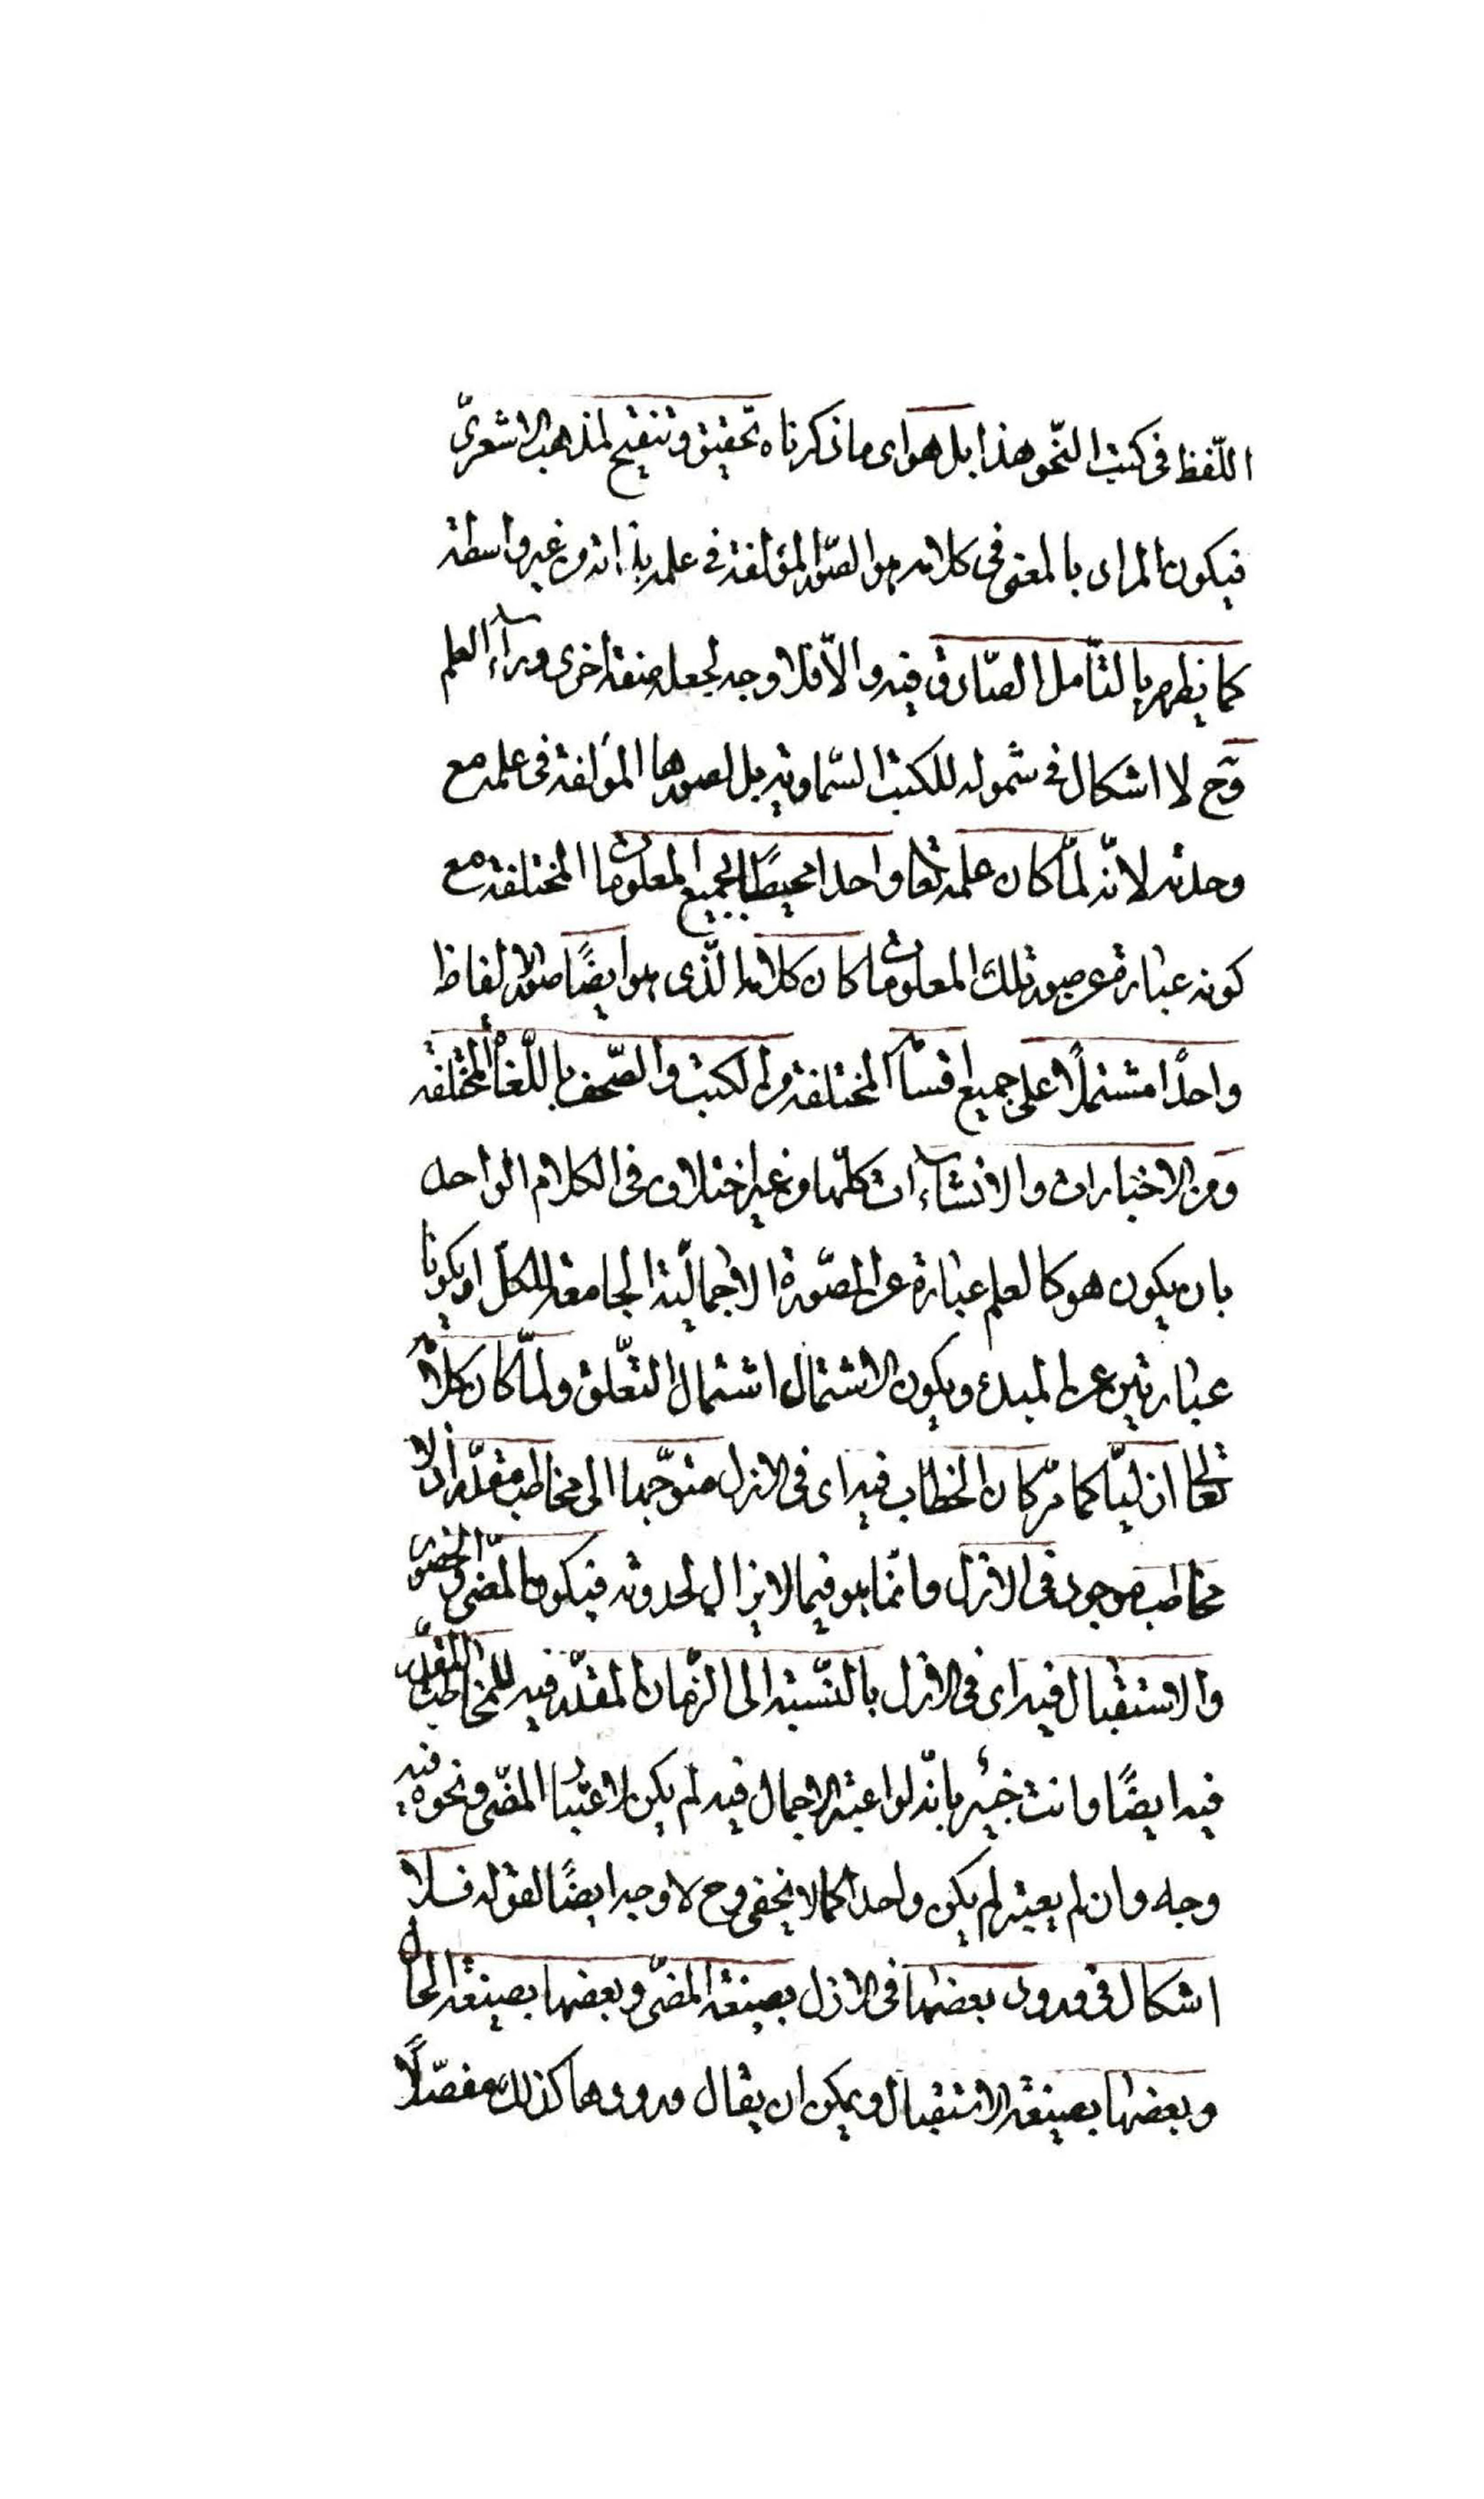 اللّفظ فى كتب النّحو هذا بل هو اى ما ذكرناه تحقيق و تنقيح لمذهب الاشعرىّ
فيكون المراد بالمعنى فى كلامه هو الصّور المؤلفة فى علمه بذاته من غير واسطة
كما يظهر بالتّأمل الصّادق فيه و الّا فلا وجه لجعله صفة اخرى ورآء العلم
وح لا اشكال فى شموله للكتب السّماوية بل لصورها المؤلفة فى علمه مع
وحدته لانّه لمّا كان علمه تعا واحدا محيطًا بجميع المعلومات المختلفة مع
كونه عبارة عن صور تلك المعلومات كان كلامه الّذى هو ايضًا صور الالفاظ
واحدًا مشتملًا على جميع اقسامه المختلفة من الكتب و الصّحف باللّغات المختلفة
و من الاخبارات و الانشآءات كلّها من غير اختلاف فى الكلام الواحد
بان يكون هو كالعلم عبارة عن الصّورة الاجماليّة الجامعة للكلّ او يكونا
عبارتين عن المبدء و يكون الاشتمال اشتمال التّعلّق و لمّا كان كلامه
تعا ازليّا كما مرّ كان الخطاب فيه اى فى الازل متوجّها الى مخاطب مقدّر اذ لا
مخاطب موجود فى الازل و انّما هو فيما لا يزال لحدوثه فيكون المضىّ و الحضور
و الاستقبال فيه اى فى الازل بالنّسبة الى الزّمان المقدّر فيه للمخاطب المقدّر
فيه ايضًا و انت خبير بانّه لو اعتبر الاجمال فيه لم يكن لاعتبار المضّى و نحوه فيه
وجه و ان لم يعتبر لم يكن واحدا كما لا يخفى و ح لا وجه ايضًا لقوله فلا
اشكال فى ورود بعضها فى الازل بصيغة المضىّ و بعضها بصيغة الحال
و بعضها بصيغة الاستقبال و يمكن ان يقال ورودها كذلك مفصّلًا